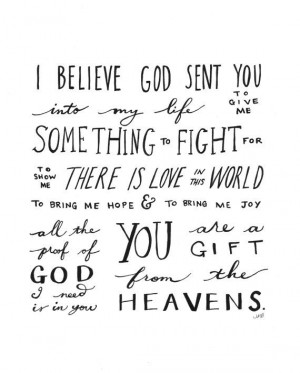 I BELIEVE GOD SENT YOU
into my life TO GIVE ME
SOMETHING TO FIGHT FOR
TO SHOW ME THERE IS LOVE IN THIS WORLD
TO BRING ME HOPE & TO BRING ME JOY
all the proof of GOD I need is in you
YOU are a GIFT
from the
HEAVENS.